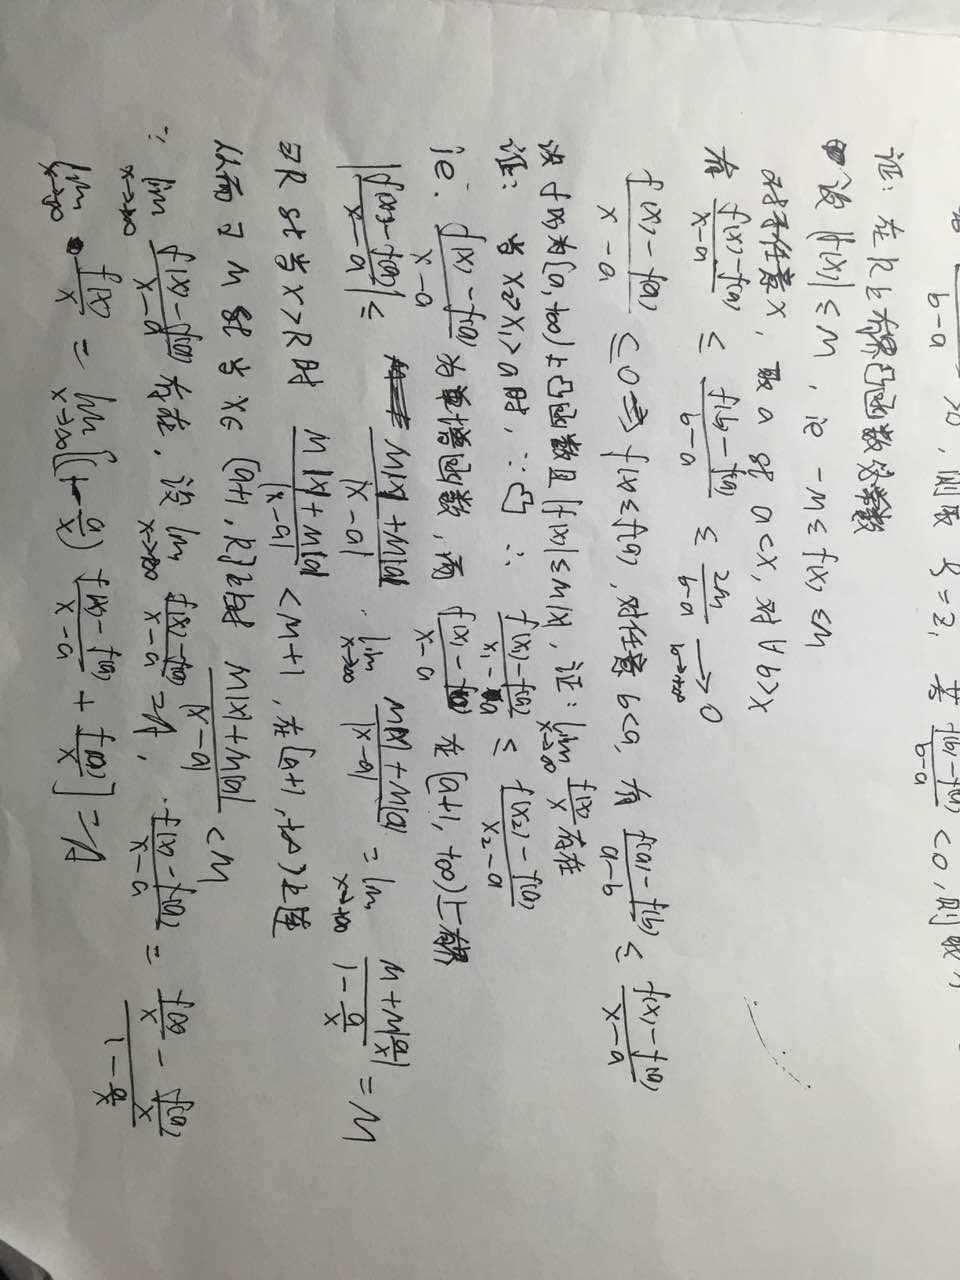 b-a >0, 则取 ξ=2, 若 \frac{f(b)-f(a)}{b-a} <0, 则取
证: 在R上有界凸函数为常数
设 |f(x)| ≤ M, ie -M ≤ f(x) ≤ M
对任意x, 取 a st a<x, 对∀b>x
有 \frac{f(x)-f(a)}{x-a} ≤ \frac{f(b)-f(a)}{b-a} ≤ \frac{2M}{b-a} \xrightarrow[b→+∞]{} 0
\frac{f(x)-f(a)}{x-a} ≤ 0 ⇒ f(x) ≤ f(a), 对任意 b<a, 有 \frac{f(a)-f(b)}{a-b} ≤ \frac{f(x)-f(a)}{x-a}
设 f(x)为[a,+∞)上凸函数且 |f(x)| ≤ M|x|, 证: \lim_{x→∞} \frac{f(x)}{x} 存在
证: 当 x₂>x₁>a时, ∵凸 ∴ \frac{f(x_1)-f(a)}{x_1-a} ≤ \frac{f(x_2)-f(a)}{x_2-a}
ie. \frac{f(x)-f(a)}{x-a} 为单增函数, 而 \frac{f(x)-f(a)}{x-a} 在[a+1,+∞)上有界
|\frac{f(x)-f(a)}{x-a}| ≤ \frac{M|x|+M|a|}{|x-a|}. \lim_{x→∞} \frac{M|x|+M|a|}{|x-a|} = \lim_{x→+∞} \frac{M+M|\frac{a}{x}|}{1-\frac{a}{x}} = M
∃R st 当 x>R时 \frac{M|x|+M|a|}{|x-a|} < M+1, 在[a+1,+∞)上连
从而∃M st 当 x∈[a+1, R]时 \frac{M|x|+M|a|}{|x-a|} < M
∵ \lim_{x→+∞} \frac{f(x)-f(a)}{x-a} 存在, 设 \lim_{x→+∞} \frac{f(x)-f(a)}{x-a} = A, \frac{f(x)-f(a)}{x-a} = \frac{\frac{f(x)}{x}-\frac{f(a)}{x}}{1-\frac{a}{x}}
\lim_{x→+∞} \frac{f(x)}{x} = \lim_{x→+∞} [(1-\frac{a}{x}) \frac{f(x)-f(a)}{x-a} + \frac{f(a)}{x}] = A